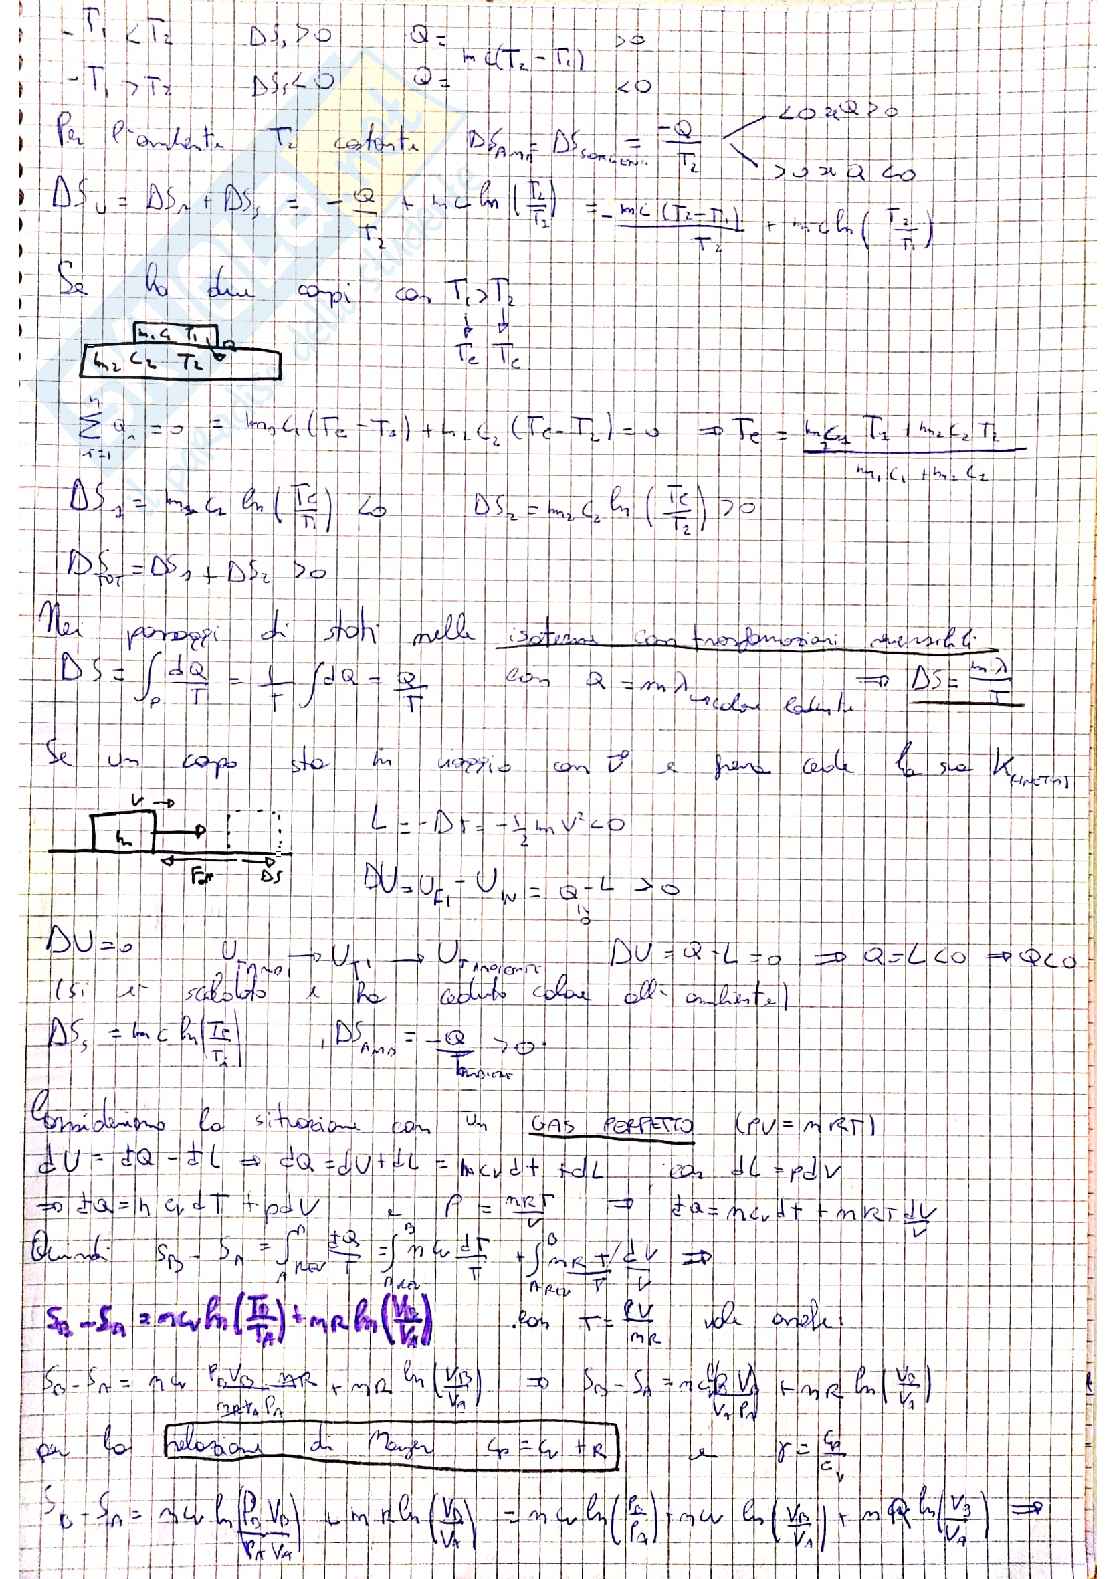 - T₁ < T₂ ΔS₁ > 0 Q = mc(T₂ - T₁) > 0
- T₁ > T₂ ΔS₁ < 0 Q = < 0
Per l'ambiente T₂ costante ΔS_AMB = ΔS_SORGENTE = -Q/T₂ < 0 se Q > 0
> 0 se Q < 0
ΔS_U = ΔS₂ + ΔS₁ = -Q/T₂ + mc ln(T₂/T₂) = -mc(T₂-T₁)/T₂ + mc ln(T₂/T₁)
Se ho due corpi con T₁ > T₂
↓ ↓
m₁ c₁ T₁ Q
Te Te
m₂ c₂ T₂
∑ Qᵢ = 0 = m₁c₁(Te - T₁) + m₂c₂(Te - T₂) = 0 ⇒ Te = (m₁c₁T₁ + m₂c₂T₂)/(m₁c₁ + m₂c₂)
ΔS₁ = m₁c₁ ln(Te/T₁) < 0 ΔS₂ = m₂c₂ ln(Te/T₂) > 0
ΔS_TOT = ΔS₁ + ΔS₂ > 0
Nei passaggi di stato nelle isoterme con trasformazioni reversibili
ΔS = ∫ đQ/T = 1/T ∫ đQ = Q/T con Q = mλ calore latente ⇒ ΔS = mλ/T
Se un corpo sta in viaggio con v e frena cede la sua K
v →
m
L = -ΔK = -1/2 mv² < 0
ΔS
ΔU = U_FI - U_IN = Q - L > 0
0
ΔU = 0 → U → U_T ambiente ΔU = Q - L = 0 ⇒ Q = L < 0 ⇒ Q < 0
(si è scaldato e ha ceduto calore all'ambiente)
ΔS = mc ln(Te/T) , ΔS_AMB = -Q/T ambiente > 0
Consideriamo la situazione con un GAS PERFETTO (PV = nRT)
dU = đQ - đL ⇒ đQ = dU + dL = ncᵥdt + dL con dL = pdV
⇒ đQ = n cᵥ dT + pdV e P = nRT/V ⇒ đQ = ncᵥdt + nRT dV/V
Quindi S_B - S_A = ∫_A REV^B đQ/T = ∫_A REV^B n cᵥ dT/T + ∫_A REV^B nRT/T dV/V ⇒
S_B - S_A = ncᵥ ln(T_B/T_A) + nR ln(V_B/V_A) con T = PV/nR vale anche:
S_B - S_A = ncᵥ P_B V_B nR/nR V_A P_A + nR ln(V_B/V_A) ⇒ S_B - S_A = ncᵥ (P_B V_B/V_A P_A) + nR ln(V_B/V_A)
per la relazione di Mayer cp = cᵥ + R e γ = cp/cᵥ
S_B - S_A = ncᵥ ln(P_B V_B/P_A V_A) + nR ln(V_B/V_A) = ncᵥ ln(P_B/P_A) + ncᵥ ln(V_B/V_A) + nR ln(V_B/V_A) ⇒